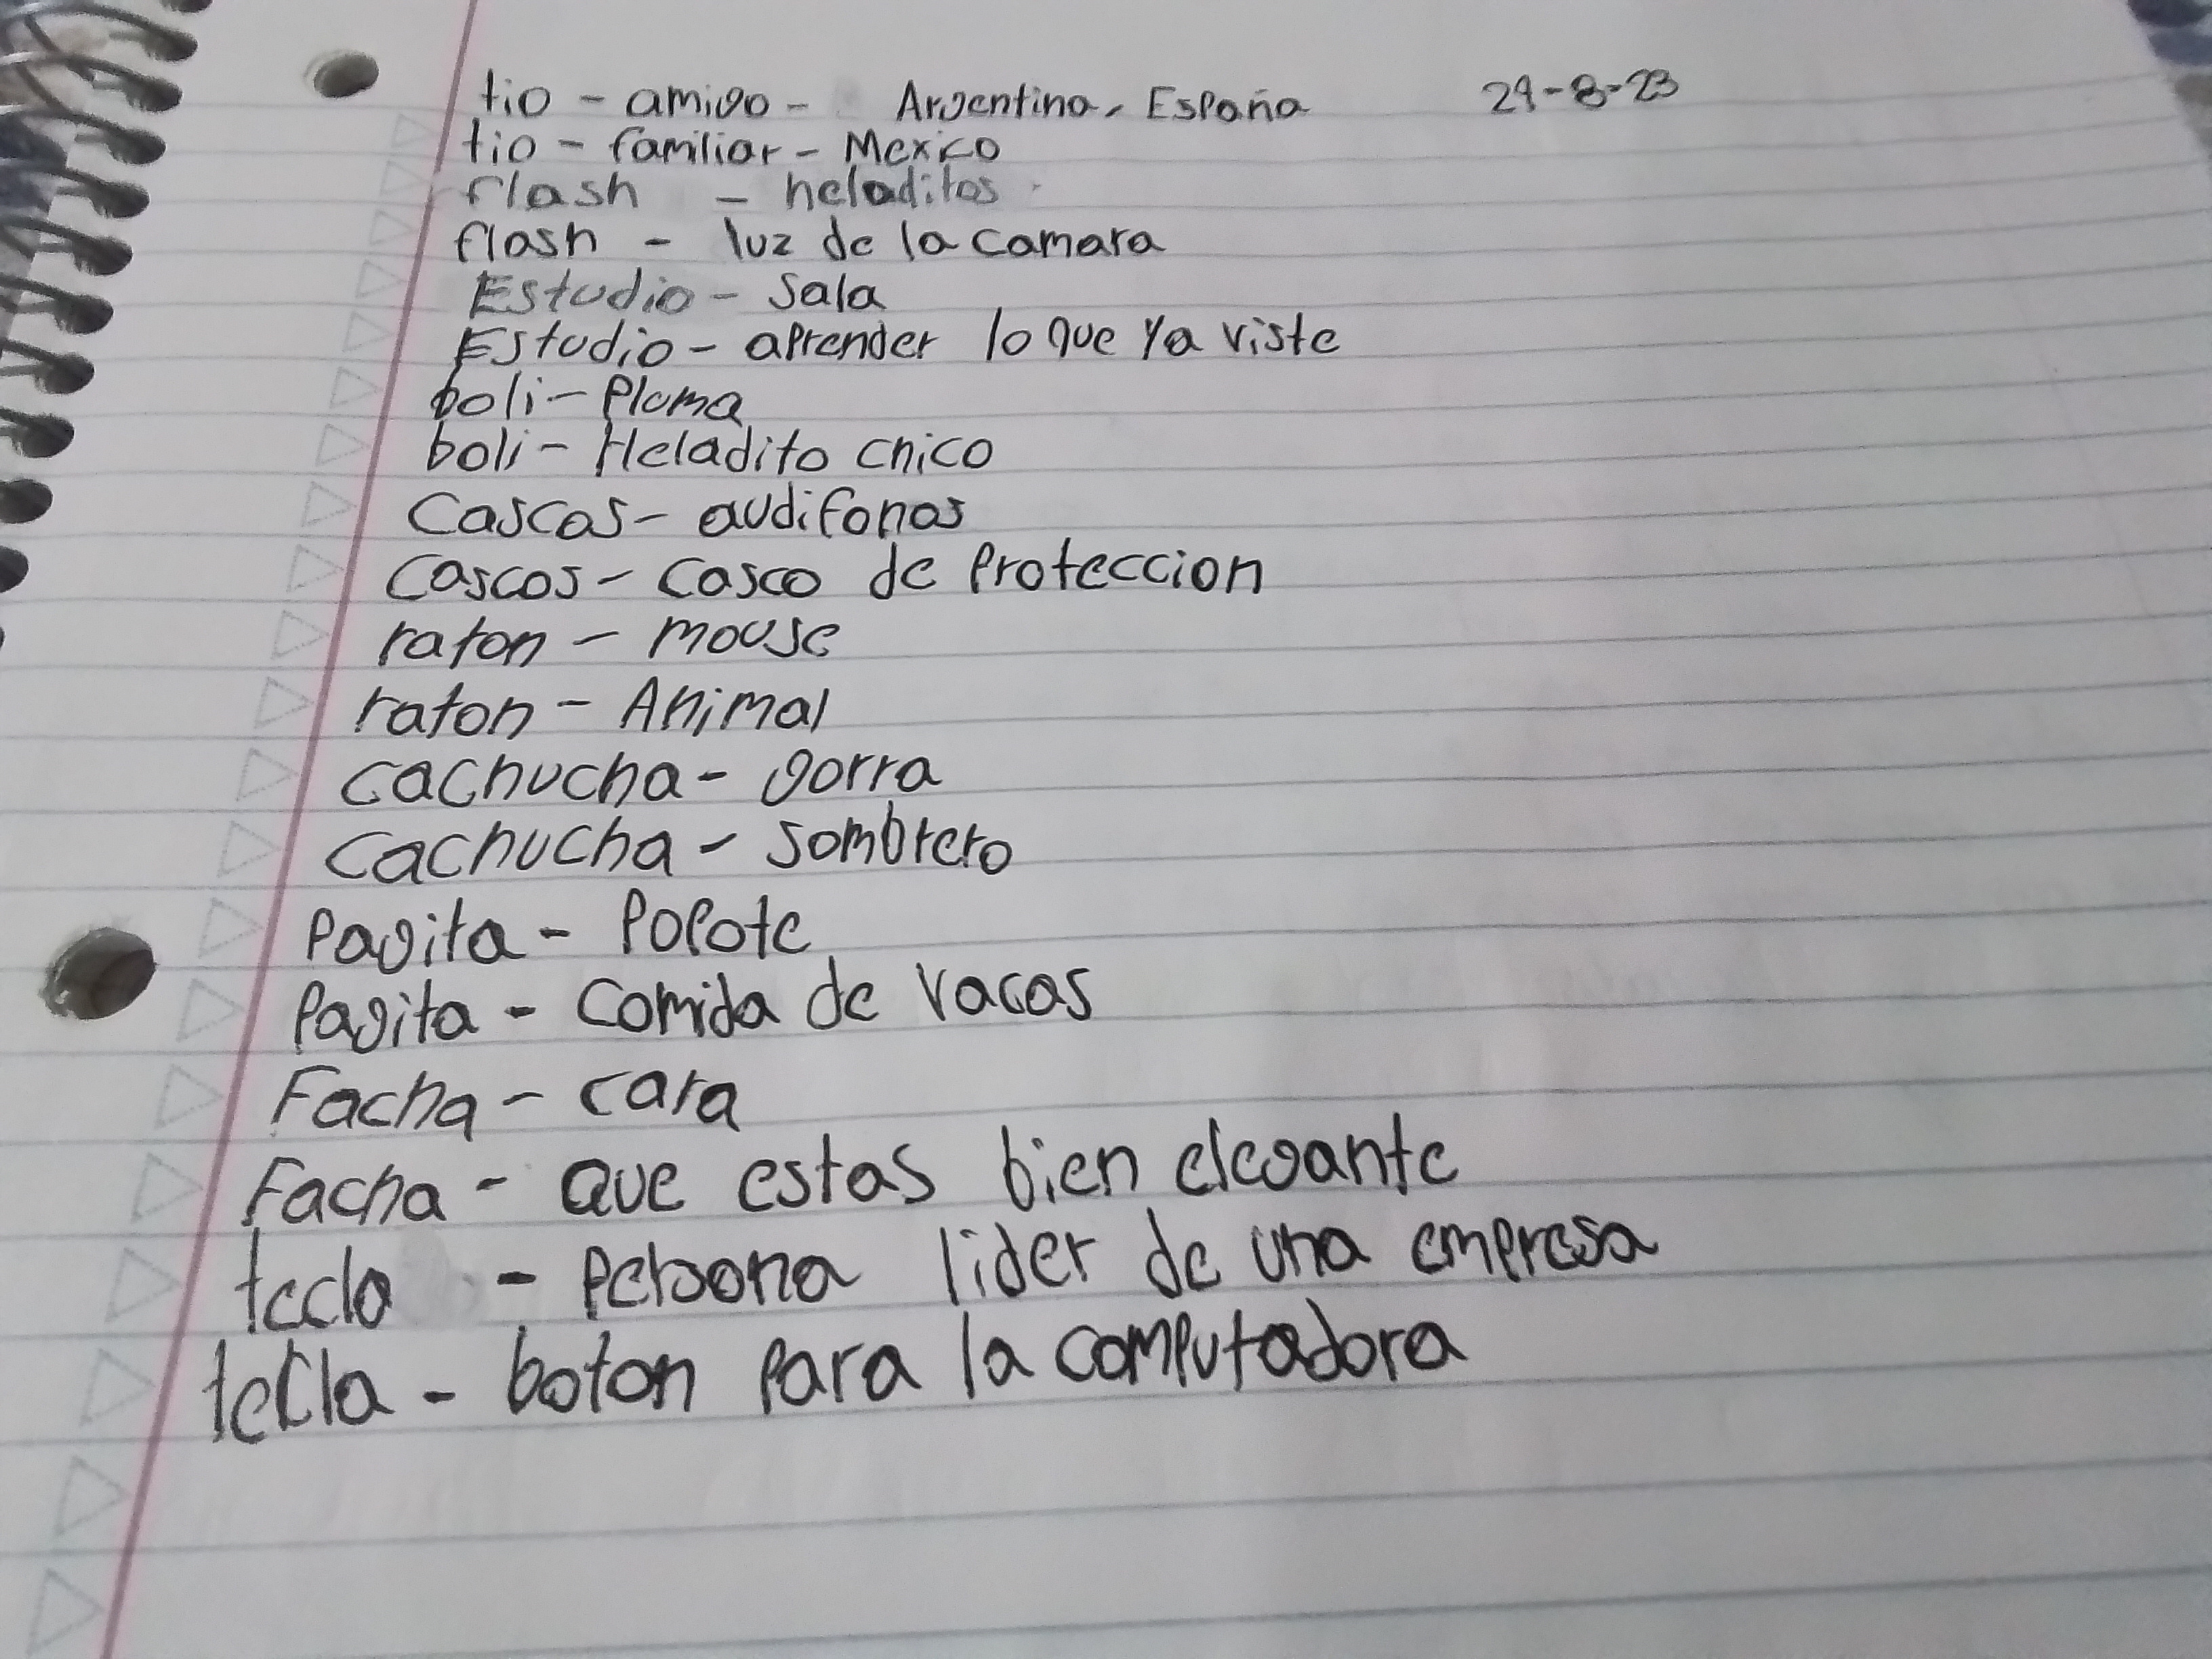 tio - amigo - Argentina, España 29-8-23
tio - familiar - Mexico
flash - heladitos
flash - luz de la camara
Estudio - sala
Estudio - aprender lo que ya viste
boli - Pluma
boli - Heladito chico
Cascos - audifonos
Cascos - casco de Proteccion
raton - mouse
raton - Animal
cachucha - gorra
cachucha - sombrero
Pagita - Popote
Pagita - Comida de vacas
Facha - cara
Facha - que estas bien elegante
tecla - Persona lider de una empresa
tecla - boton para la computadora